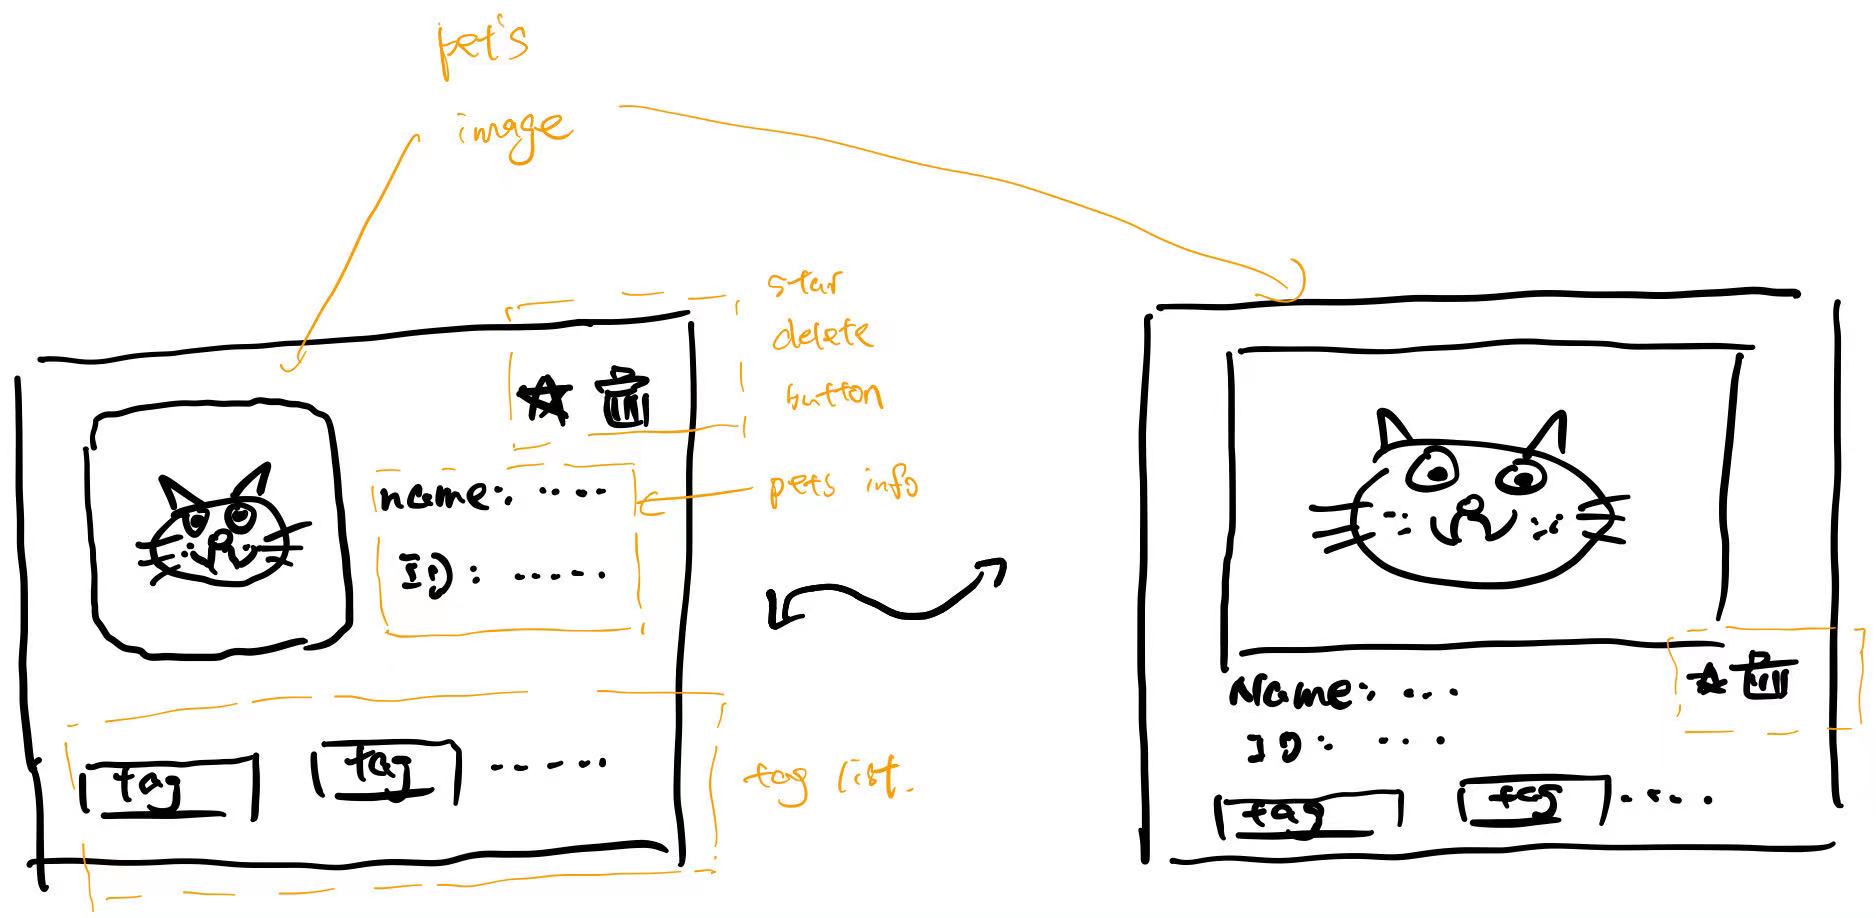 pet's
image
star
delete
button
name: ....
pets info
ID: .....
tag
tag
.....
tag list.
Name: ...
ID: ...
tag
tag
....